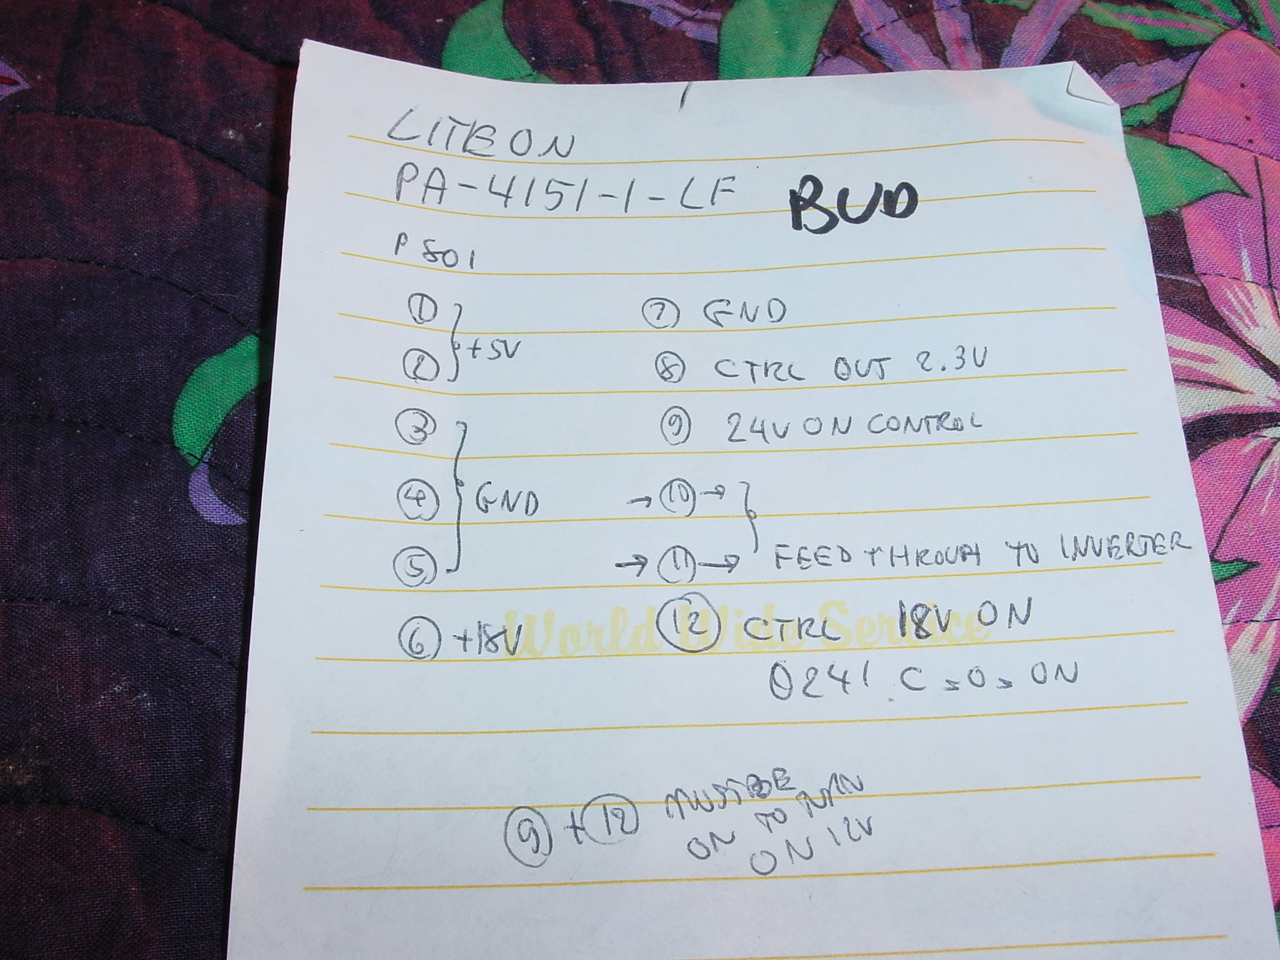 LITEON
PA-4151-1-LF BUD
P801
① } +5V
②
③ } GND
④
⑤
⑥ +18V
⑦ GND
⑧ CTRL OUT 2.3V
⑨ 24V ON CONTROL
→ ⑩ → }
→ ⑪ → FEED THROUGH TO INVERTER
⑫ CTRL 18V ON
World Wide Service
0241.C
ON
⑨ + ⑫ MUST BE
ON TO TURN
ON 12V